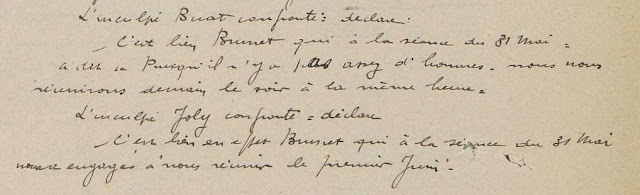 L'inculpé Buat confronté = déclare :
— C'est bien Brunet qui à la séance du 31 Mai =
a dit = Puisqu'il n'y a pas assez d'hommes. nous nous
réunirons demain le soir à la même heure =
L'inculpé Joly confronté = déclare
— C'est bien en effet Brunet qui à la séance du 31 Mai
nous a engagés à nous réunir le premier Juin.